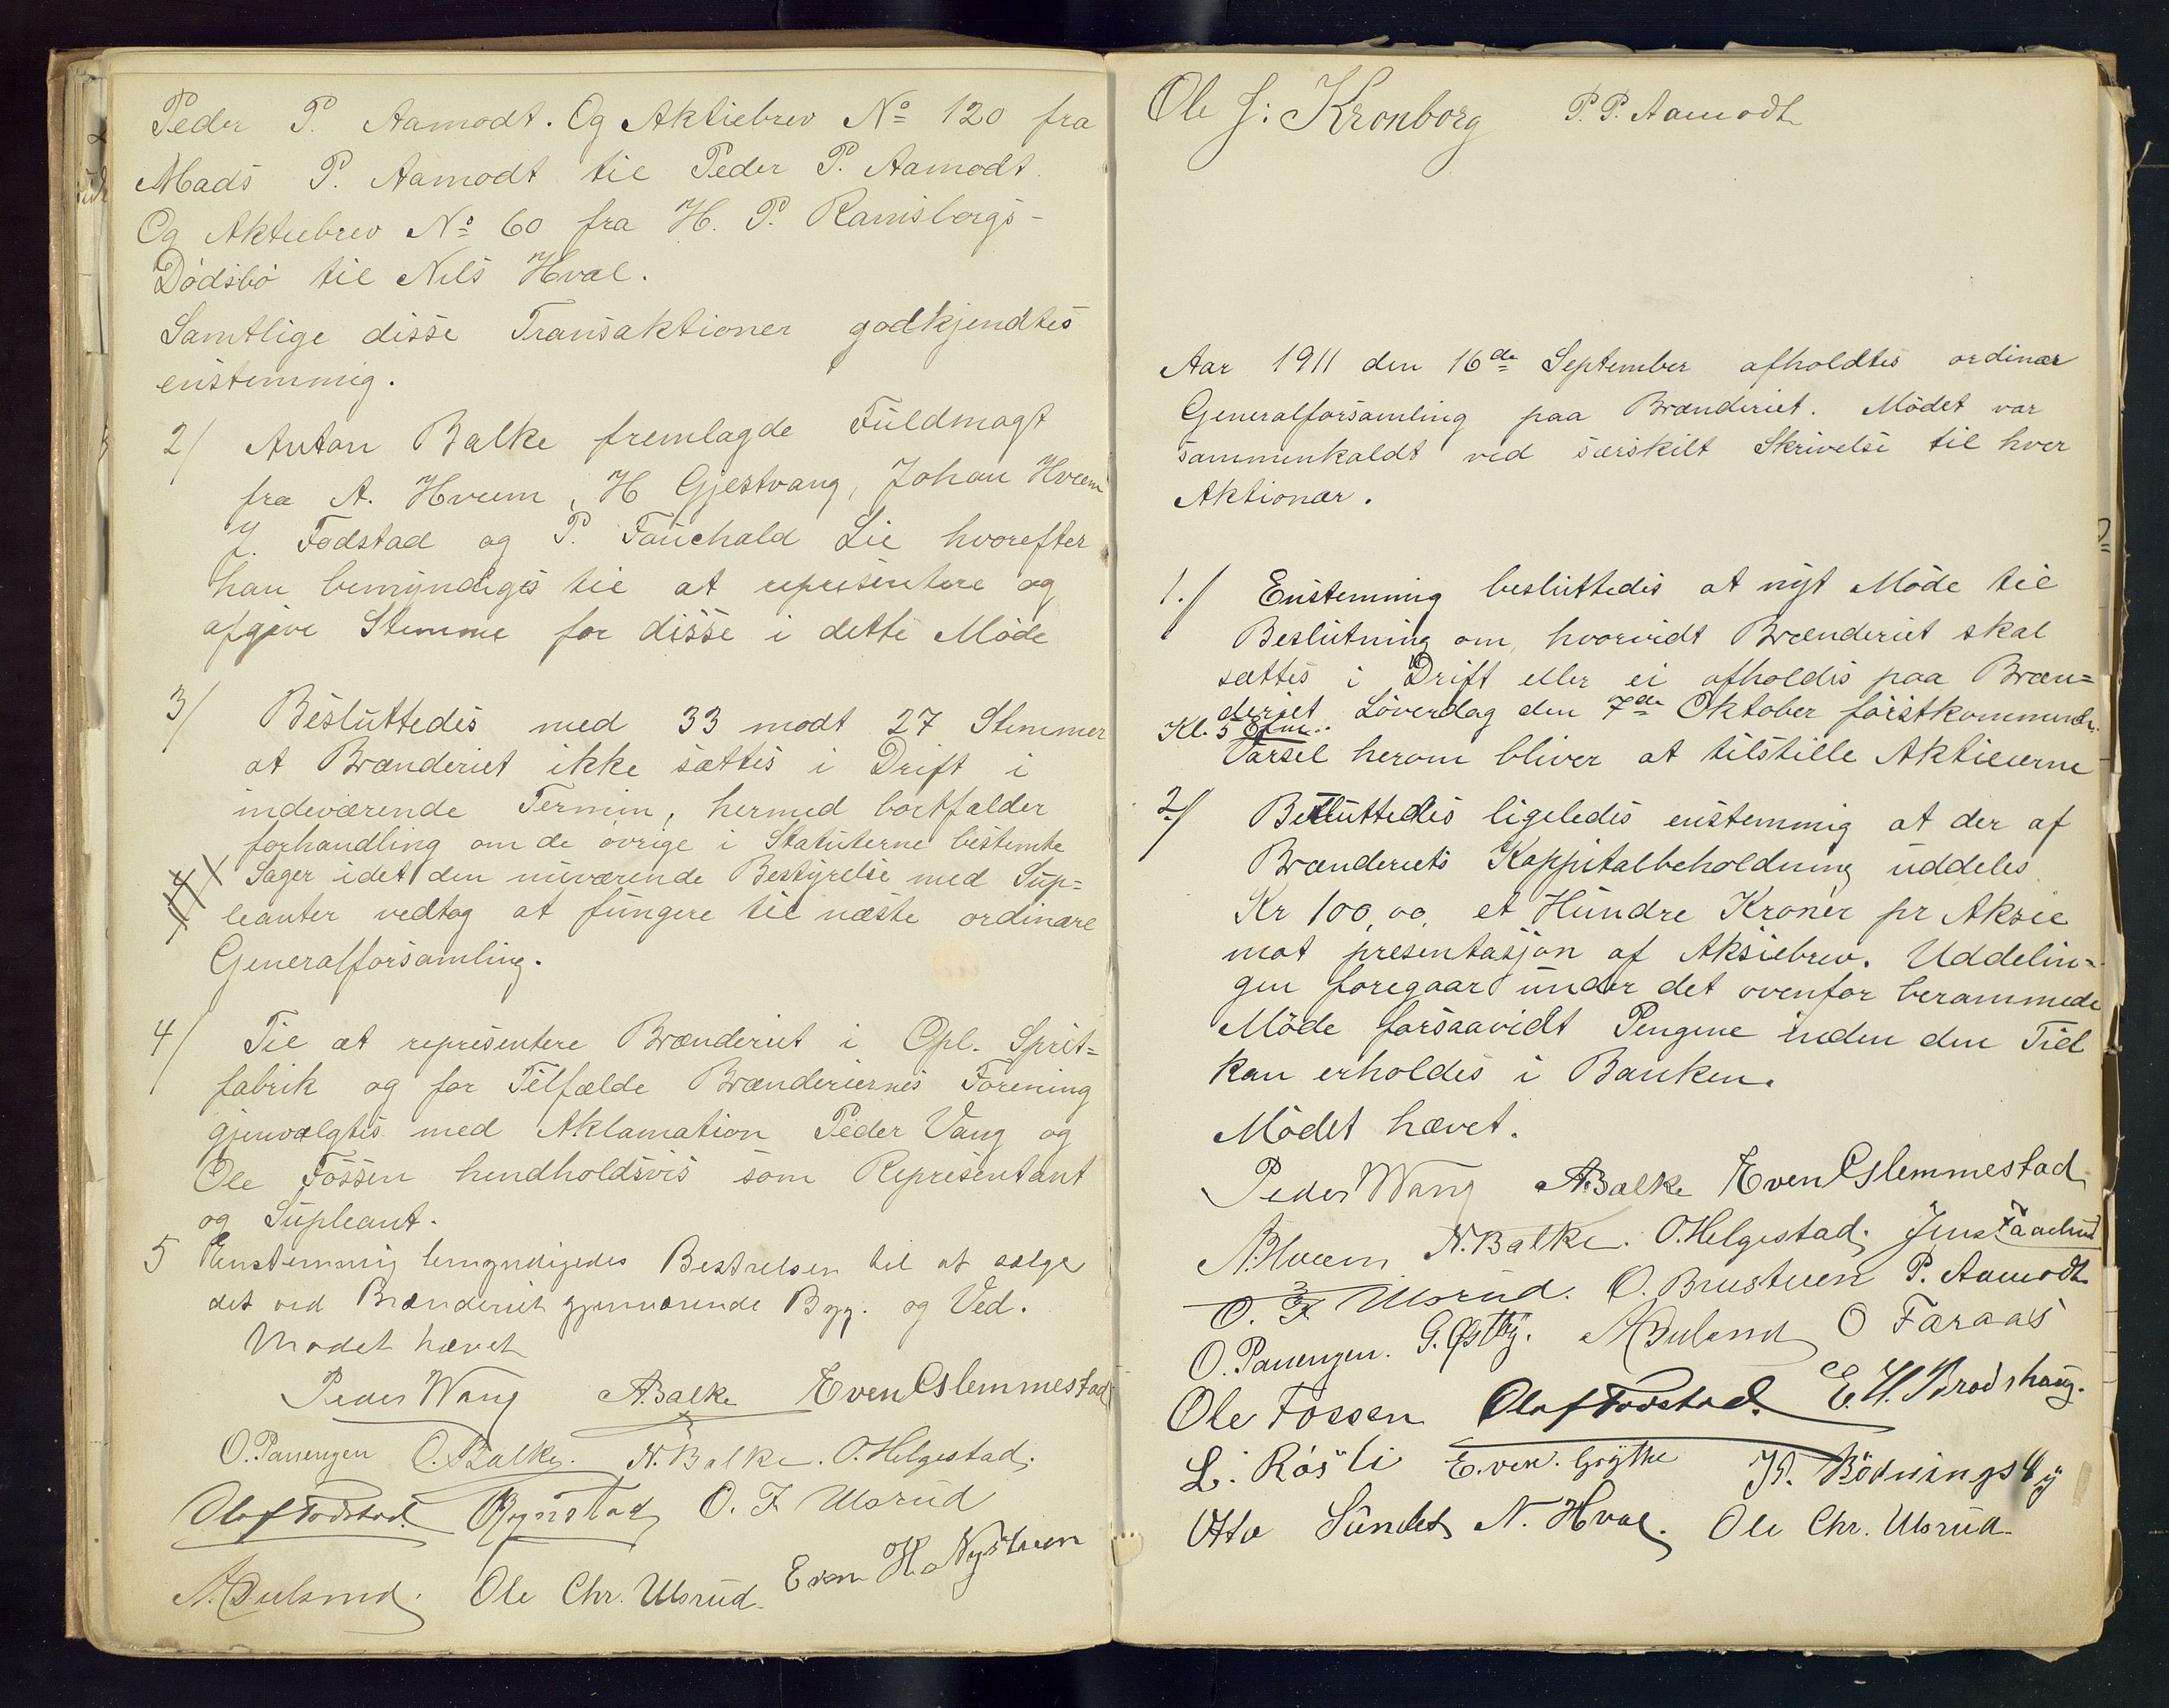 Peder P. Aamodt. Og Aktiebrev No 120 fra
Mads P. Aamodt til Peder P. Aamodt.
Og Aktiebrev No 60 fra H. P. Ramsbergs-
Dödsbö til Nils Hval.
Samtlige disse Transaktioner godkjendtes
enstemmig.
2/ Anton Balke fremlagde Fuldmagt
fra A. Hveem, H Gjestvang, Johan Hveem
J. Fodstad og P. Fauchald Lie hvorefter
han bemyndiges til at representere og
afgive Stemme for disse i dette Möde
3/ Besluttedes med 33 modt 27 Stemmer
at Brænderiet ikke sættes i Drift i
indeværende Termin, hermed bortfalder
forhandling om de övrige i Statuterne bestemte
Sager idet den nuværende Bestyrelse med Sup=
leanter vedtog at fungere til næste ordinære
Generalforsamling.
4/ Til at representere Brænderiet i Opl. Sprit=
fabrik og for Tilfælde Brænderiernes Forening
gjenvalgtes med Aklamation Peder Vang og
Ole Fossen hendholdsvis som Representant
og Supleant.
5 Enstemmig bemyndigedes Bestrelsen til at sælge
det ved Brænderiet gjenværende Byg. og Ved.
Modet hævet
Peder Wang A. Balke Even Eslemmestad
O. Panengen O. Balke. N. Balke. O. Helgestad.
Olaf Fodstad. Rynstad O. F Ulsrud
A. Ole Chr. Ulsrud. Even H. Nystuen
Ole J: Kronborg P. P. Aamodt
Aar 1911 den 16de September afholdtes ordinær
Generalforsamling paa Brænderiet. Mödet var
sammenkaldt ved særskilt Skrivelse til hver
Aktionær.
1./ Enstemmig besluttedes at nyt Möde til
Beslutning om, hvorvidt Brænderiet skal
sættes i Drift eller ei afholdes paa Bræn=
deriet Löverdag den 7de Oktober förstkommende.
Kl. 5 Efm..
Varsel herom bliver at tilstille Aktieierne
2./ Besluttedes ligeledes enstemmig at der af
Brænderiets Kappitalbeholdning uddeles
Kr 100,00, et Hundre Kroner pr Aksie
mot presentasjon af Aksiebrev. Uddelin=
gen foregaar under det ovenfor berammede
Möde forsaavidt Pengene inden den Tid
kan erholdes i Banken.
Mödet hævet.
Peder Wang A. Balke Even Eslemmestad
A. Hveem N. Balke. O. Helgestad. Jens
O. F Ulsrud. O. Brustuen P. Aamodt
O. Panengen. G. Østby. A. O Faraas
Ole Fossen Olaf Fodstad. E. H. Brodshaug.
L. Rösli Even. Grythe Bödningsby
Otto Sundet N. Hval. Ole Chr. Ulsrud.